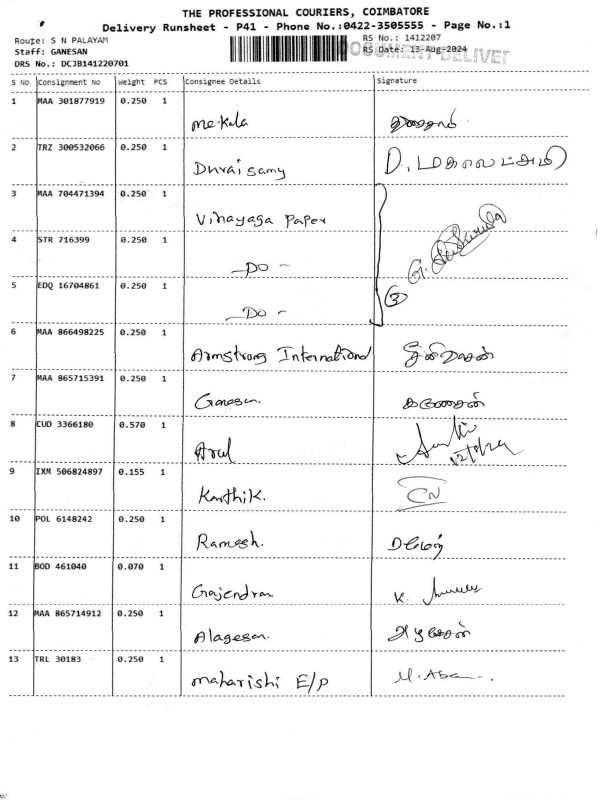 THE PROFESSIONAL COURIERS, COIMBATORE
Delivery Runsheet - P41 - Phone No.:0422-3505555 - Page No.:1
Route: S N PALAYAM
RS No.: 1412207
Staff: GANESAN
RS Date: 13-Aug-2024
DOCUMENT DELIVET
DRS No.: DCJB141220701
S No Consignment No Weight PCS Consignee Details Signature
1 MAA 301877919 0.250 1
Mekala
2 TRZ 300532066 0.250 1
Duraisamy D. மகாலட்சுமி
3 MAA 704471394 0.250 1
Vinayaga Paper
4 STR 716399 0.250 1
-DO-
5 EDQ 16704861 0.250 1
-DO- 3
6 MAA 866498225 0.250 1
Armstrong International
7 MAA 865715391 0.250 1
Ganesan. கணேசன்
8 CUD 3366180 0.570 1
Arul
9 IXM 506824897 0.155 1
Karthik. CN
10 POL 6148242 0.250 1
Ramesh. ரமேஷ்
11 BOD 461040 0.070 1
Gajendran K.
12 MAA 865714912 0.250 1
Alagesan. அழகேசன்
13 TRL 30183 0.250 1
Maharishi E/P